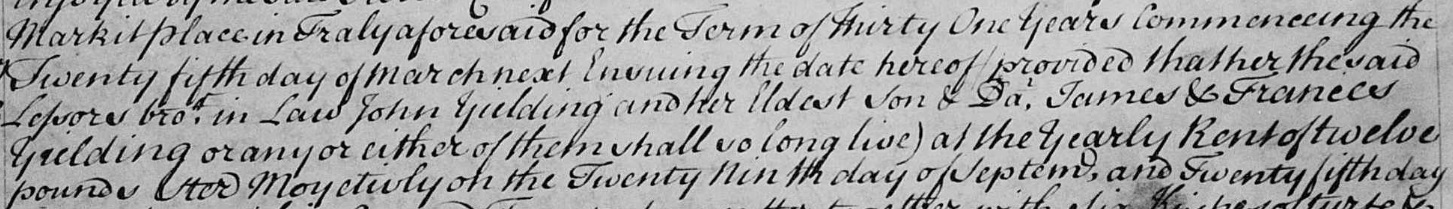 Markit place in Traly aforesaid for the Term of thirty One Years Commenceing the
Twenty fifth day of March next Ensuing the date hereof (provided that her the said
Lessors bror. in Law John Yielding and her Eldest Son & Dar. James & Frances
Yielding or any or either of them shall so long live) at the Yearly Rent of twelve
pounds Ster Moyetivly on the Twenty Ninth day of Septemr. and Twenty fifth day
together with six